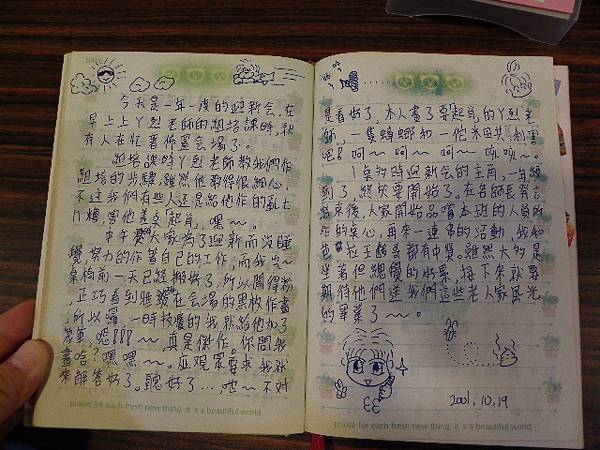 今天是一年一度的迎新会,在
早上上丫烈老師的組培課時,就
有人在忙著佈置会場了。
組培課時丫烈老師教我們作
組培的步驟,雖然他教得很細心,
不过我們有些人还是給他作的亂七
八糟,害他差点起肖,嘿~。
中午大家為了迎新而沒睡
覺,努力的作著自己的工作,而我
桌椅前一天已經搬好了,所以閒得
正巧看到雅 在会場的黑板作画
,所以囉,一時技癢的我就給他加了
嗯!!!~,真是傑作,你問我
畫啥?嘿嘿~。 要求我就
來解答好了。聽好了…,~不对
是看好了,本人畫了要起肖的丫烈老
師,一隻蟑螂和一 米田共,利害
吧!呵~呵~呵~
1点多時迎新会的主角,一年級
到了,終於要開始了。在各師長發言
結束後,大家開始品嚐本班的人員所
作的点心,再來一連串的活動,我和
拉王 都有中獎。雖然大多是
坐著但總覺的好累,接下來就要
期待他們送我們這些老人家風光
的畢業了~。
2001,10,19
praise for each fresh new thing, it s a beautiful world
praise for each fresh new thing, it s a beautiful world